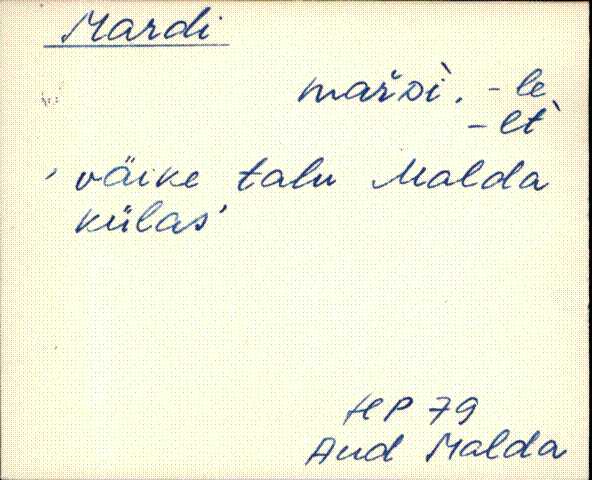 Mardi
mařᴅì, -le
-lt̀
'väike talu Malda
külas'
HP 79
Aud Malda